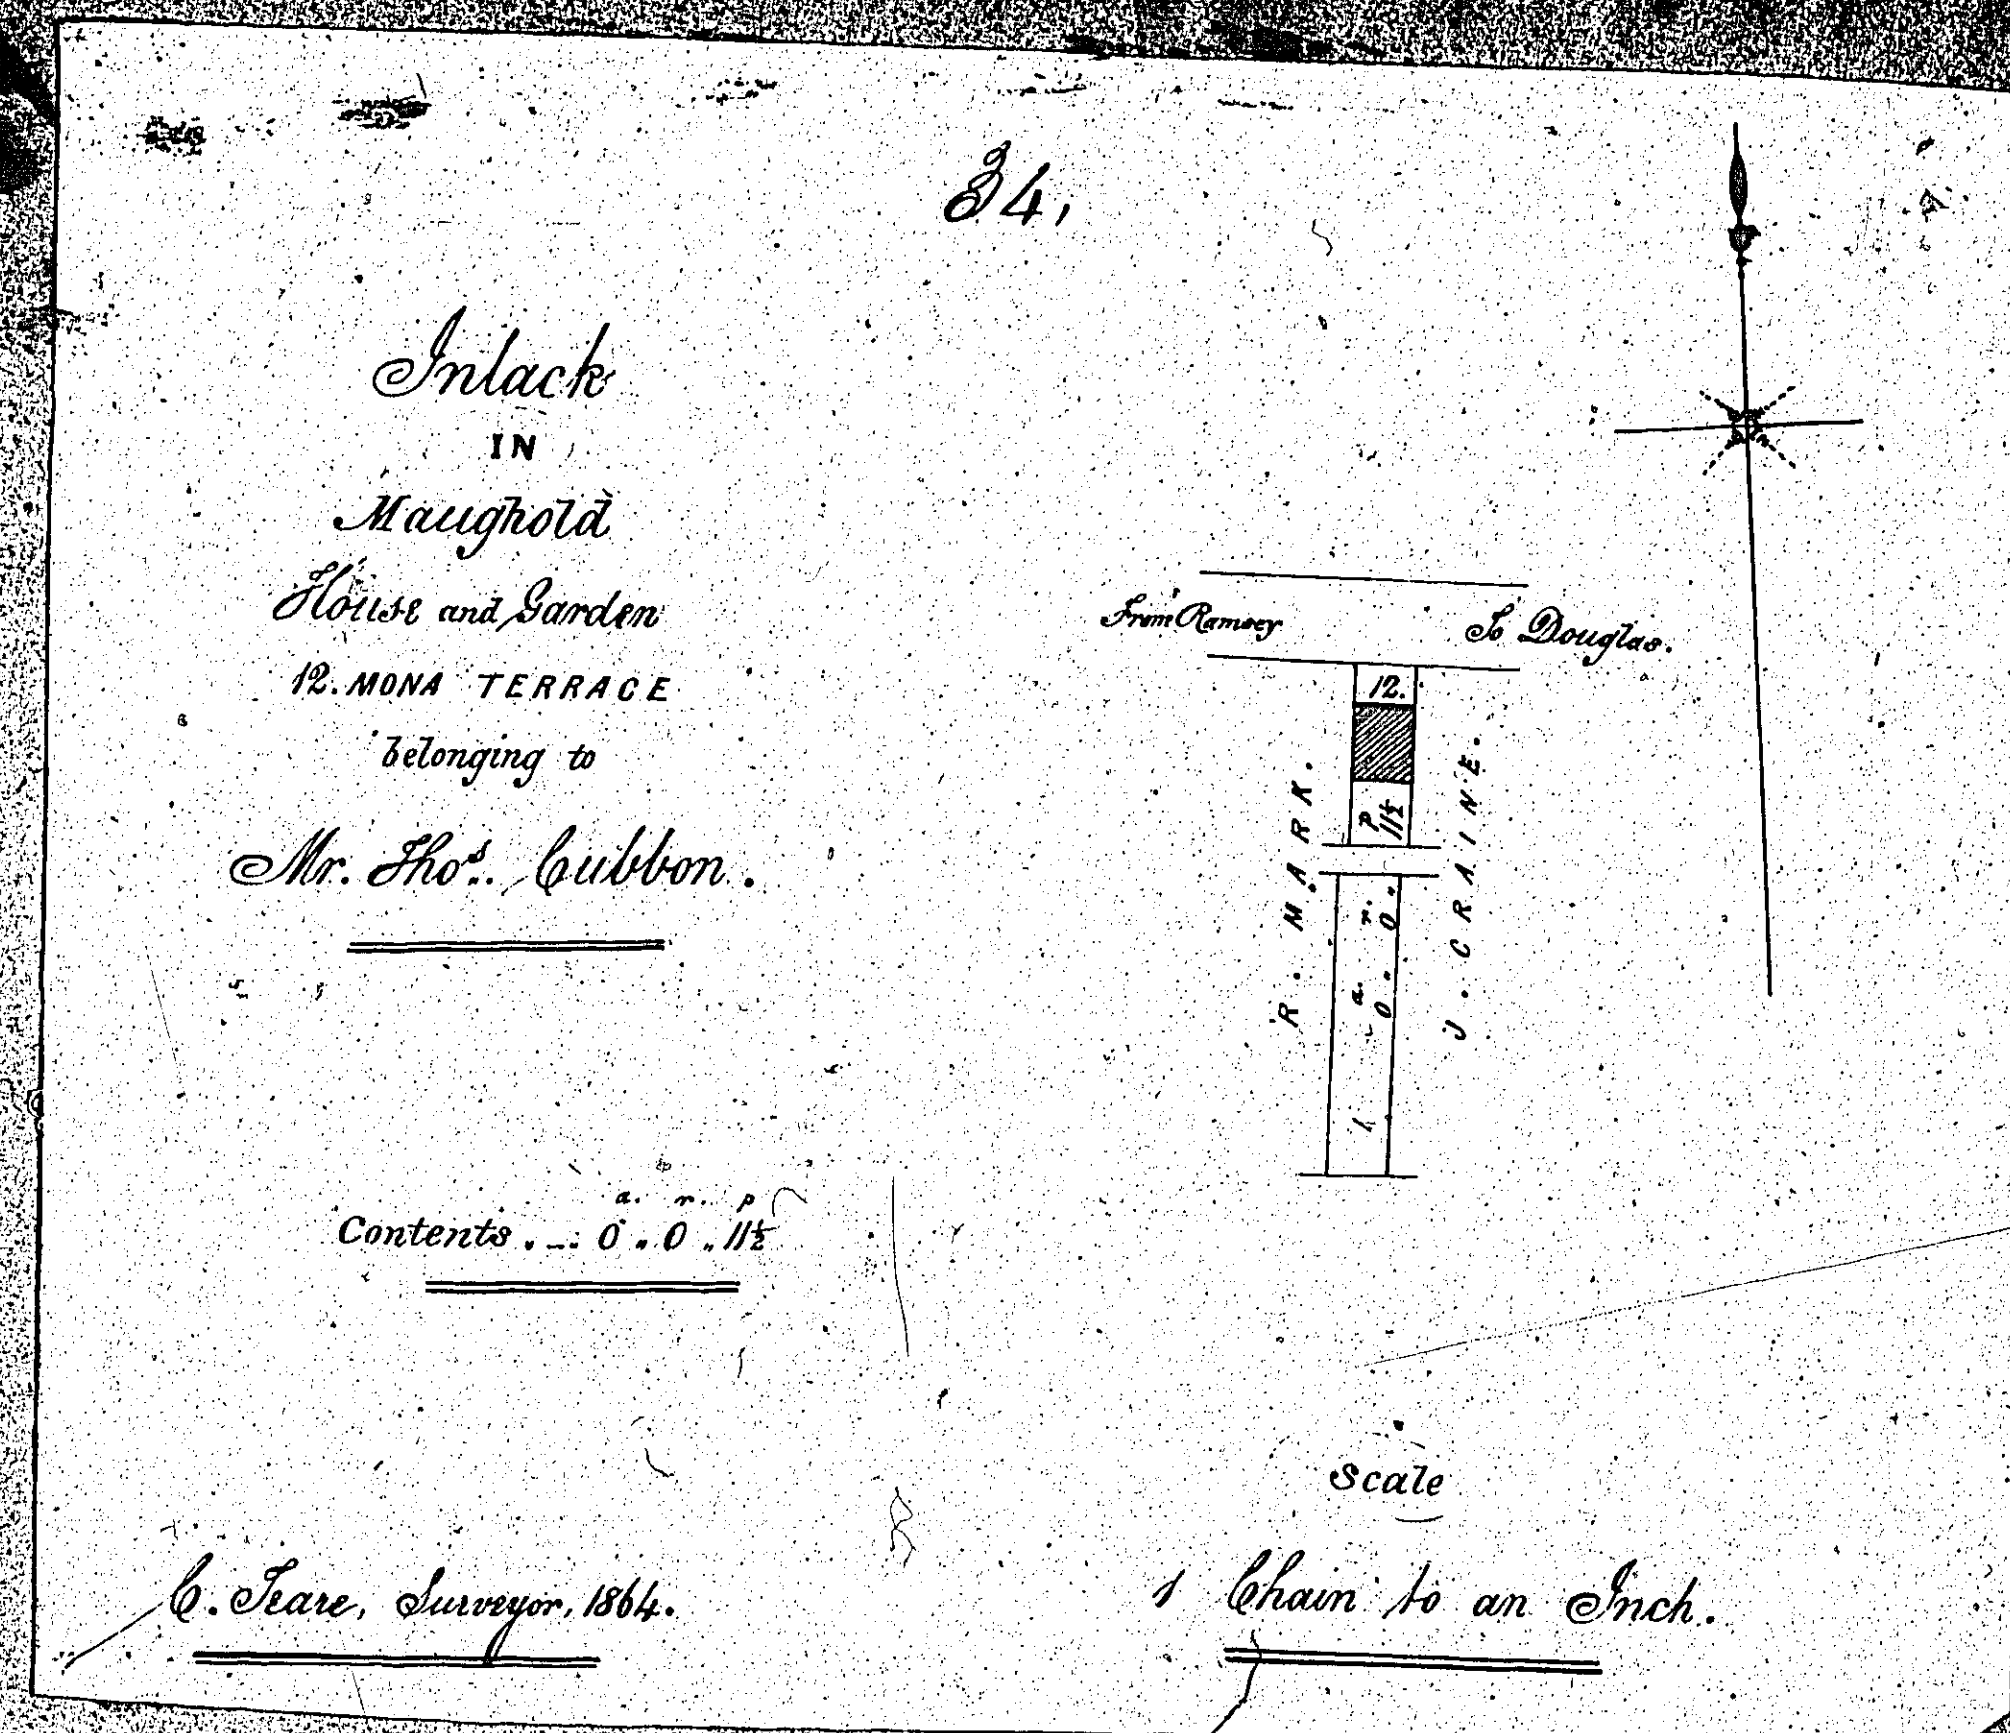 34,
Inlack
IN
Maughold
House and Garden
12. MONA TERRACE
belonging to
Mr. Thos. Cubbon.
a. r. p
Contents . _ . 0 .. 0 .. 11½
C. Teare, Surveyor, 1864.
From Ramsey
To Douglas.
12.
R. MARK.
J. CRAINE.
a. r. p
0 .. 0 .. 11½
1.
Scale
1 Chain to an Inch.